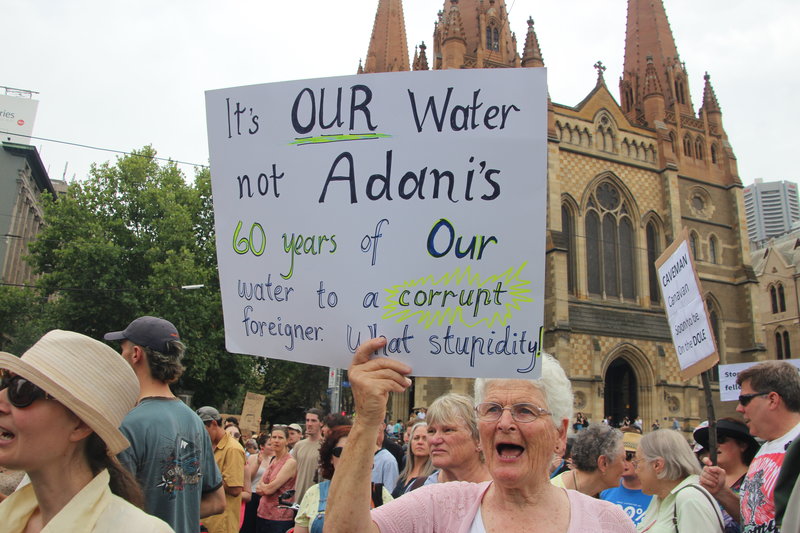 It's OUR Water
not Adani's
60 years of Our
water to a corrupt
foreigner. What stupidity!
CAVEMAN
Canavan
Soon to be
On the DOLE
Stop